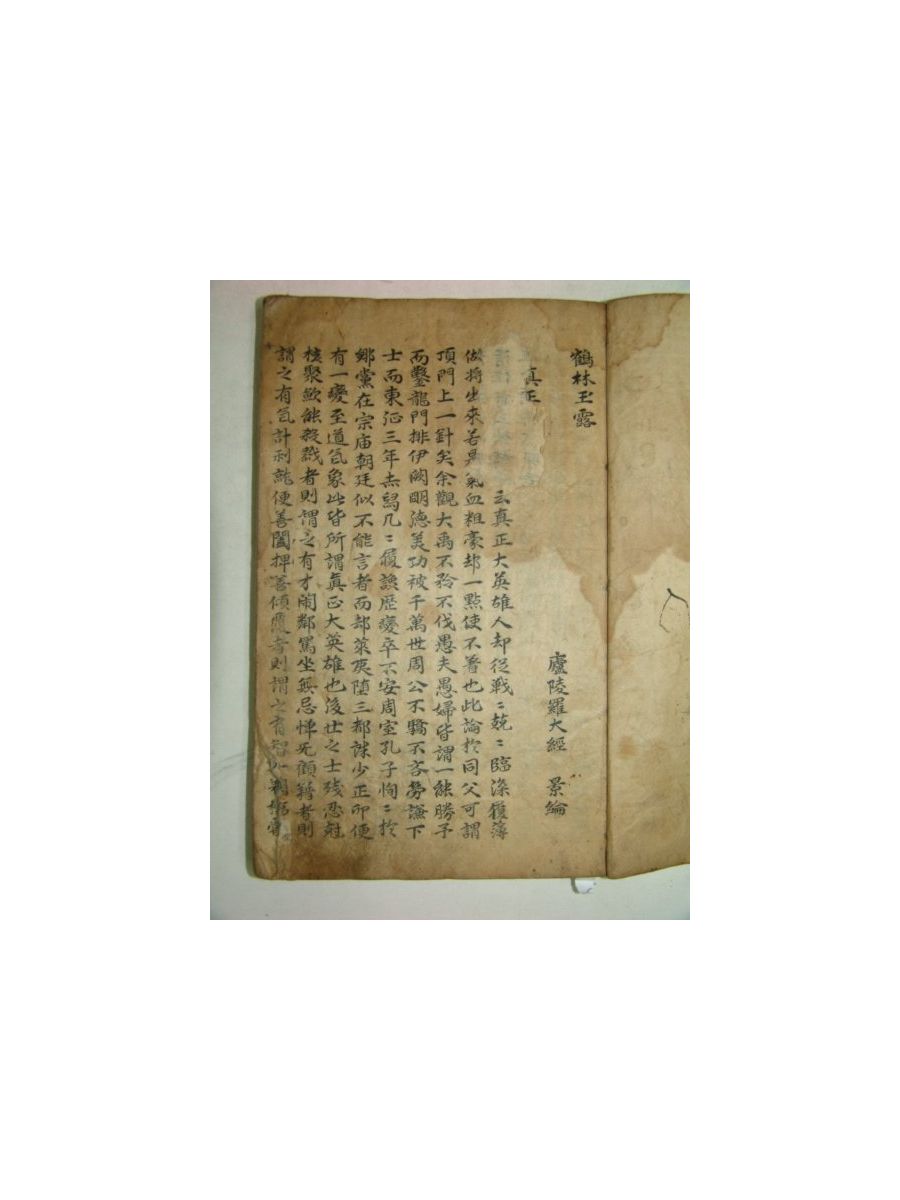 鶴林玉露
廬陵羅大經 景綸
真正
云真正大英雄人却從戰〻兢〻臨深履薄
做將出來若是氣血粗豪却一點使不着也此論於同父可謂
頂門上一針矣余觀大禹不矜不伐愚夫愚婦皆謂一能勝予
而鑿龍門排伊闕明德美功被千萬世周公不驕不吝勞謙下
士而東征三年赤舄几〻履讒歷變卒不安周室孔子恂〻於
鄉黨在宗庙朝廷似不能言者而却萊夷墮三都誅少正卯便
有一變至道氣象此皆所謂真正大英雄也後世之士殘忍尅
核聚斂能殺戮者則謂之有才鬧鄰罵坐無忌憚无顧藉者則
謂之有氣計利就便善闔捭善傾覆者則謂之有智